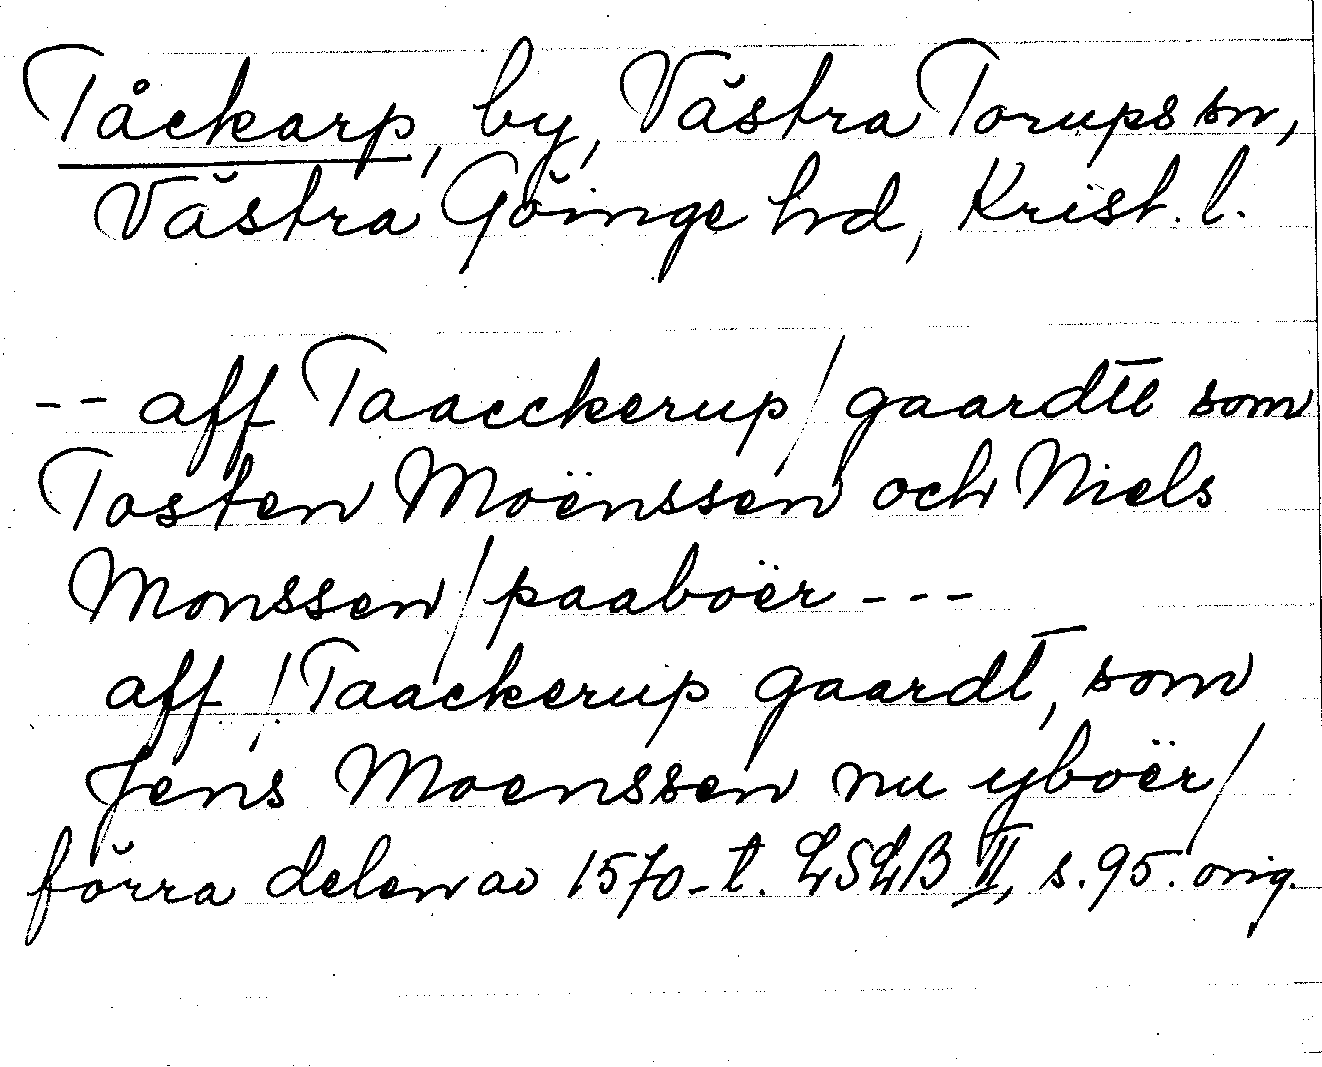 Tåckarp, by, Västra Torups sn,
Västra Göinge hd, Krist. l.
-- aff Taacckerup / gaardtt som
Tosten Moënssen och Niels
Monssen / paaboër ---
aff / Taackerup gaardt, som
Jens Moenssen nu yboër /
förra delen av 1570-t. LSLB II, s. 95. orig.